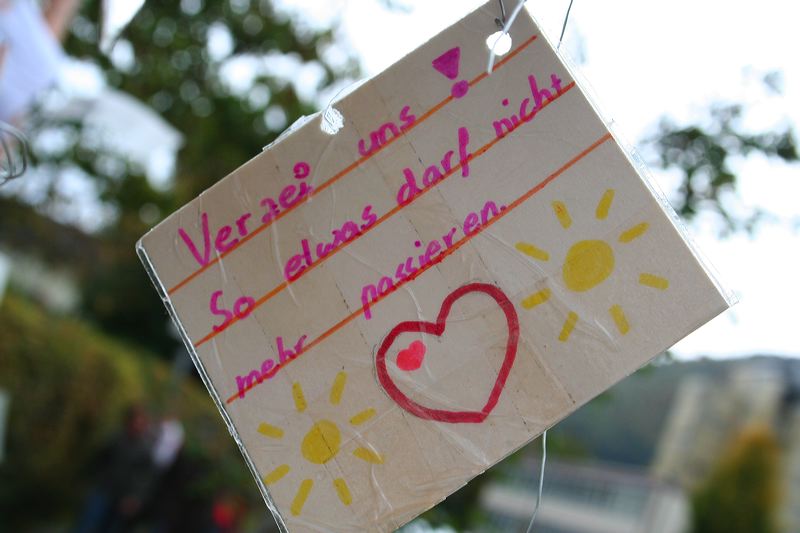 Verzei uns!
So etwas darf nicht
mehr passieren.